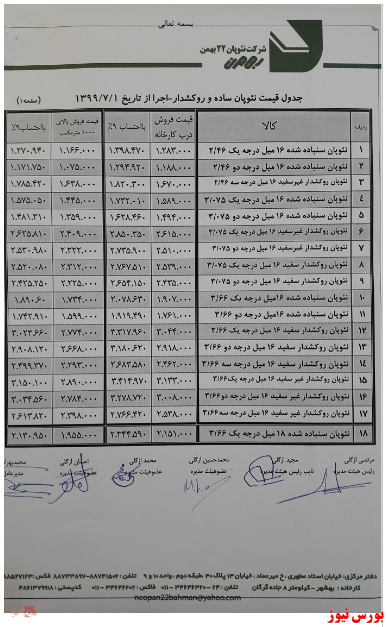 بسمه تعالی
شرکت نئوپان ۲۲ بهمن
جدول قیمت نئوپان ساده و روکشدار-اجرا از تاریخ ۱۳۹۹/۷/۱ (صفحه۱)
ردیف کالا قیمت فروش درب کارخانه بااحتساب ۹% قیمت فروش بالای ۱۰۰۰ مترمکعب بااحتساب ۹%
۱ نئوپان سنباده شده ۱۶ میل درجه یک ۲/۴۶ ۱.۲۸۳.۰۰۰ ۱.۳۹۸.۴۷۰ ۱.۱۶۶.۰۰۰ ۱.۲۷۰.۹۴۰
۲ نئوپان سنباده شده ۱۶ میل درجه دو ۲/۴۶ ۱.۱۸۸.۰۰۰ ۱.۲۹۴.۹۲۰ ۱.۰۷۵.۰۰۰ ۱.۱۷۱.۷۵۰
۳ نئوپان روکشدار غیرسفید ۱۶ میل درجه سه ۲/۴۶ ۱.۶۷۰.۰۰۰ ۱.۸۲۰.۳۰۰ ۱.۶۳۸.۰۰۰ ۱.۷۸۵.۴۲۰
۴ نئوپان سنباده شده ۱۶ میل درجه یک ۳/۰۷۵ ۱.۵۸۹.۰۰۰ ۱.۷۳۲.۰۱۰ ۱.۴۴۵.۰۰۰ ۱.۵۷۵.۰۵۰
۵ نئوپان سنباده شده ۱۶ میل درجه دو ۳/۰۷۵ ۱.۴۹۴.۰۰۰ ۱.۶۲۸.۴۶۰ ۱.۳۵۹.۰۰۰ ۱.۴۸۱.۳۱۰
۶ نئوپان روکشدار غیرسفید ۱۶ میل درجه یک ۳/۰۷۵ ۲.۶۱۵.۰۰۰ ۲.۸۵۰.۳۵۰ ۲.۴۰۹.۰۰۰ ۲.۶۲۵.۸۱۰
۷ نئوپان روکشدار غیرسفید ۱۶ میل درجه دو ۳/۰۷۵ ۲.۵۱۰.۰۰۰ ۲.۷۳۵.۹۰۰ ۲.۳۲۲.۰۰۰ ۲.۵۳۰.۹۸۰
۸ نئوپان روکشدار سفید ۱۶ میل درجه یک ۳/۰۷۵ ۲.۵۳۹.۰۰۰ ۲.۷۶۷.۵۱۰ ۲.۳۱۲.۰۰۰ ۲.۵۲۰.۰۸۰
۹ نئوپان روکشدار سفید ۱۶ میل درجه دو ۳/۰۷۵ ۲.۴۳۵.۰۰۰ ۲.۶۵۴.۱۵۰ ۲.۲۲۵.۰۰۰ ۲.۴۲۵.۲۵۰
۱۰ نئوپان سنباده شده ۱۶ میل درجه یک ۳/۶۶ ۱.۹۰۷.۰۰۰ ۲.۰۷۸.۶۳۰ ۱.۷۳۴.۰۰۰ ۱.۸۹۰.۰۶۰
۱۱ نئوپان سنباده شده ۱۶ میل درجه دو ۳/۶۶ ۱.۷۶۱.۰۰۰ ۱.۹۱۹.۴۹۰ ۱.۵۹۹.۰۰۰ ۱.۷۴۲.۹۱۰
۱۲ نئوپان روکشدار سفید ۱۶ میل درجه یک ۳/۶۶ ۳.۰۴۴.۰۰۰ ۳.۳۱۷.۹۶۰ ۲.۷۷۴.۰۰۰ ۳.۰۲۳.۶۶۰
۱۳ نئوپان روکشدار سفید ۱۶ میل درجه دو ۳/۶۶ ۲.۹۱۸.۰۰۰ ۳.۱۸۰.۶۲۰ ۲.۶۶۸.۰۰۰ ۲.۹۰۸.۱۲۰
۱۴ نئوپان روکشدار سفید ۱۶ میل درجه سه ۳/۶۶ ۲.۴۶۲.۰۰۰ ۲.۶۸۳.۵۸۰ ۲.۲۹۳.۰۰۰ ۲.۴۹۹.۳۷۰
۱۵ نئوپان روکشدار غیر سفید ۱۶ میل درجه یک ۳/۶۶ ۳.۱۳۳.۰۰۰ ۳.۴۱۴.۹۷۰ ۲.۸۹۰.۰۰۰ ۳.۱۵۰.۱۰۰
۱۶ نئوپان روکشدار غیر سفید ۱۶ میل درجه دو ۳/۶۶ ۳.۰۰۸.۰۰۰ ۳.۲۷۸.۷۲۰ ۲.۷۸۴.۰۰۰ ۳.۰۳۴.۵۶۰
۱۷ نئوپان روکشدار غیر سفید ۱۶ میل درجه سه ۳/۶۶ ۲.۵۳۸.۰۰۰ ۲.۷۶۶.۴۲۰ ۲.۳۹۸.۰۰۰ ۲.۶۱۳.۸۲۰
۱۸ نئوپان سنباده شده ۱۸ میل درجه یک ۳/۶۶ ۲.۱۵۱.۰۰۰ ۲.۳۴۴.۵۹۰ ۱.۹۵۵.۰۰۰ ۲.۱۳۰.۹۵۰
مرتضی ازگلی مجید ازگلی محمدحسین ازگلی محمد ازگلی احسان ازگلی
رئیس هیئت مدیره نایب رئیس هیئت مدیره عضوهیئت مدیره عضوهیئت مدیره عضوهیئت مدیره مدیرعامل
دفتر مرکزی: خیابان استاد مطهری، خ میرعماد، خیابان ۱۳ پلاک ۴۰ طبقه دوم، واحد ۱۰ و ۹ تلفن: ۸۸۷۴۱۵۰۶-۸۸۷۳۳۸۹۷ فکس:
کارخانه: بهشهر - کیلومتر ۸ جاده گرگان
neopan22bahman@yahoo.com
بورس نیوز